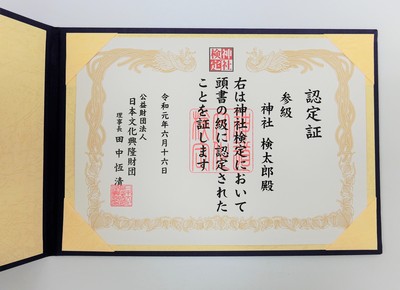 認定証
参級
神社 検太郎殿
右は神社検定において
頭書の級に認定された
ことを証します
令和元年六月十六日
公益財団法人
日本文化興隆財団
理事長 田中恆清
神社
検定